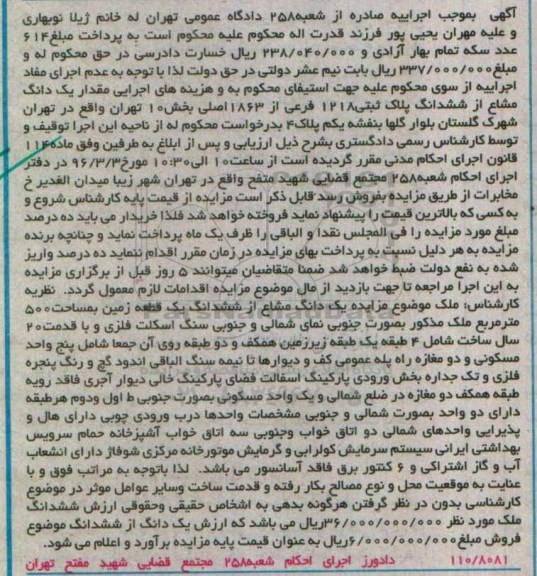 آگهی بموجب اجراییه صادره از شعبه۲۵۸ دادگاه عمومی تهران له خانم ژیلا نوبهاری
و علیه مهران یحیی پور فرزند قدرت اله محکوم علیه محکوم است به پرداخت مبلغ۶۱۴
عدد سکه تمام بهار آزادی و ۲۳۸/۰۴۰/۰۰۰ ریال خسارت دادرسی در حق محکوم له و
مبلغ۳۳۷/۰۰۰/۰۰۰ ریال بابت نیم عشر دولتی در حق دولت لذا با توجه به عدم اجرای مفاد
اجراییه از سوی محکوم علیه جهت استیفای محکوم به و هزینه های اجرایی مقدار یک دانگ
مشاع از ششدانگ پلاک ثبتی۱۲۱۸ فرعی از ۱۸۶۳اصلی بخش۱۰ تهران واقع در تهران
شهرک گلستان بلوار گلها بنفشه یکم پلاک۴ بدرخواست محکوم له از ناحیه این اجرا توقیف و
توسط کارشناس رسمی دادگستری بشرح ذیل ارزیابی و پس از ابلاغ به طرفین وفق ماده۱۱۴
قانون اجرای احکام مدنی مقرر گردیده است از ساعت۱۰ الی۱۰:۳۰ مورخ۹۶/۳/۳ در دفتر
اجرای احکام شعبه۲۵۸ مجتمع قضایی شهید مفتح واقع در تهران شهر زیبا میدان الغدیر خ
مخابرات از طریق مزایده بفروش رسد قابل ذکر است مزایده از قیمت پایه کارشناس شروع و
به کسی که بالاترین قیمت را پیشنهاد نماید فروخته خواهد شد فلذا خریدار می باید ده درصد
مبلغ مورد مزایده را فی المجلس نقدا و الباقی را ظرف یک ماه پرداخت نماید و چنانچه برنده
مزایده به هر دلیل نسبت به پرداخت بهای مزایده در زمان مقرر اقدام ننماید ده درصد واریز
شده به نفع دولت ضبط خواهد شد ضمنا متقاضیان میتوانند ۵ روز قبل از برگزاری مزایده
به این اجرا مراجعه تا جهت بازدید از مال موضوع مزایده اقدامات لازم معمول گردد. نظریه
کارشناس: ملک موضوع مزایده یک دانگ مشاع از ششدانگ یک قطعه زمین بمساحت۵۰۰
مترمربع ملک مذکور بصورت جنوبی نمای شمالی و جنوبی سنگ اسکلت فلزی و با قدمت۲۰
سال ساخت شامل ۴ طبقه یک طبقه زیرزمین همکف و دو طبقه روی آن جمعا شامل پنج واحد
مسکونی و دو مغازه راه پله عمومی کف و دیوارها تا نیمه سنگ الباقی اندود گچ و رنگ پنجره
فلزی و تک جداره بخش ورودی پارکینگ اسفالت فضای پارکینگ خالی دیوار آجری فاقد رویه
طبقه همکف دو مغازه در ضلع شمالی و یک واحد مسکونی بصورت جنوبی ط اول ودوم هرطبقه
دارای دو واحد بصورت شمالی و جنوبی مشخصات واحدها درب ورودی چوبی دارای هال و
پذیرایی واحدهای شمالی دو اتاق خواب وجنوبی سه اتاق خواب آشپزخانه حمام سرویس
بهداشتی ایرانی سیستم سرمایش کولرابی و گرمایش موتورخانه مرکزی شوفاژ دارای انشعاب
آب و گاز اشتراکی و ۶ کنتور برق فاقد آسانسور می باشد. لذا باتوجه به مراتب فوق و با
عنایت به موقعیت محل و نوع مصالح بکار رفته و قدمت ساخت وسایر عوامل موثر در موضوع
کارشناسی بدون در نظر گرفتن هرگونه بدهی به اشخاص حقیقی وحقوقی ارزش ششدانگ
ملک مورد نظر ۳۶/۰۰۰/۰۰۰/۰۰۰ریال می باشد که ارزش یک دانگ از ششدانگ موضوع
فروش مبلغ۶/۰۰۰/۰۰۰/۰۰۰ریال به عنوان قیمت پایه مزایده برآورد و اعلام می شود.
۱۱۰/۸۰۸۱ دادورز اجرای احکام شعبه۲۵۸ مجتمع قضایی شهید مفتح تهران